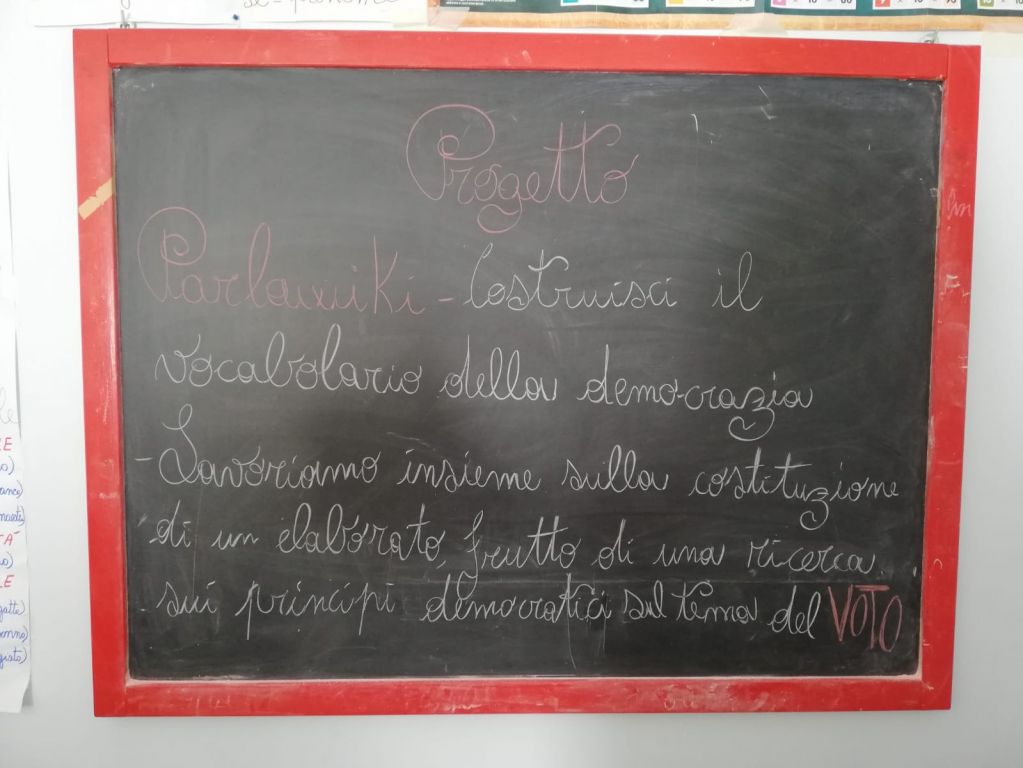 Progetto
Parlawiki - Costruisci il
vocabolario della democrazia
- Lavoriamo insieme sulla costituzione
di un elaborato, frutto di una ricerca
sui principi democratici sul tema del VOTO